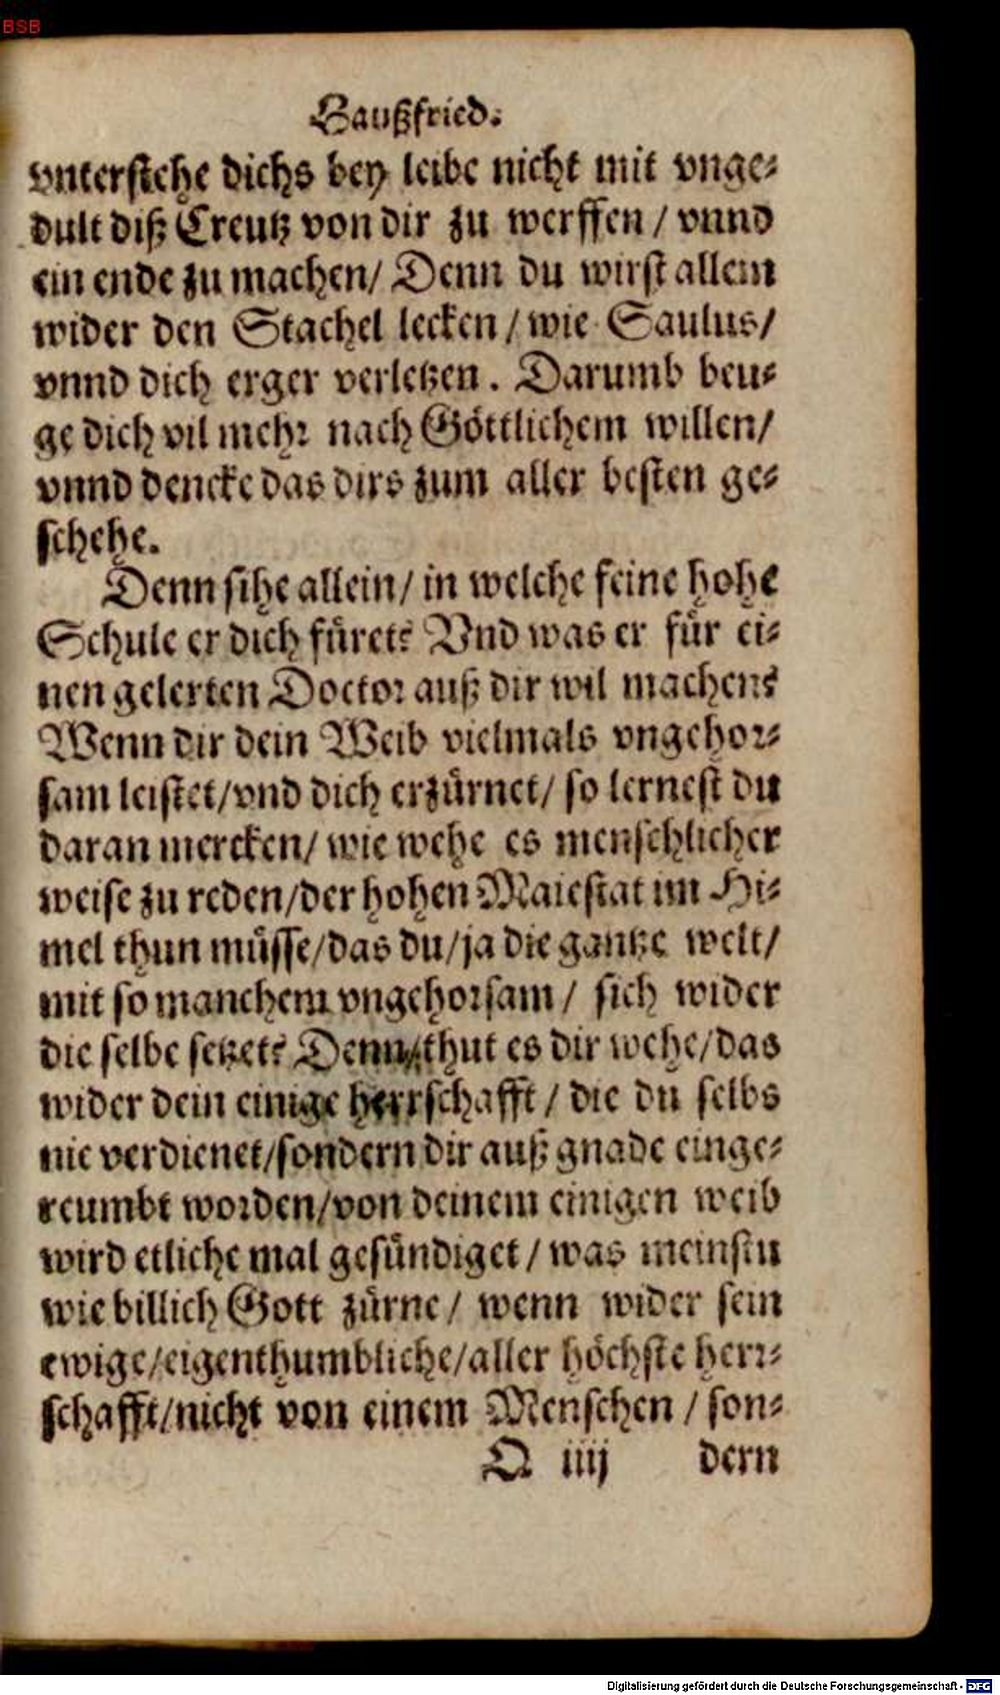 BSB
Haußfried.
vnterstehe dichs bey leibe nicht mit vnge-
dult diß Creutz von dir zu werffen / vnnd
ein ende zu machen / Denn du wirst allein
wider den Stachel lecken / wie Saulus /
vnnd dich erger verletzen. Darumb beu-
ge dich vil mehr nach Göttlichem willen /
vnnd dencke das dirs zum aller besten ge-
schehe.
Denn sihe allein / in welche feine hohe
Schule er dich füret? Vnd was er für ei-
nen gelerten Doctor auß dir wil machen?
Wenn dir dein Weib vielmals vngehor-
sam leistet / vnd dich erzürnet / so lernest du
daran mercken / wie wehe es menschlicher
weise zu reden / der hohen Maiestat im Hi-
mel thun müsse / das du / ja die gantze welt /
mit so manchem vngehorsam / sich wider
die selbe setzet? Denn / thut es dir wehe / das
wider dein einige herrschafft / die du selbs
nie verdienet / sondern dir auß gnade einge-
reumbt worden / von deinem einigen weib
wird etliche mal gesündiget / was meinstu
wie billich Gott zürne / wenn wider sein
ewige / eigenthumbliche / aller höchste herr-
schafft / nicht von einem Menschen / son-
Q iiij dern
Digitalisierung gefördert durch die Deutsche Forschungsgemeinschaft - DFG